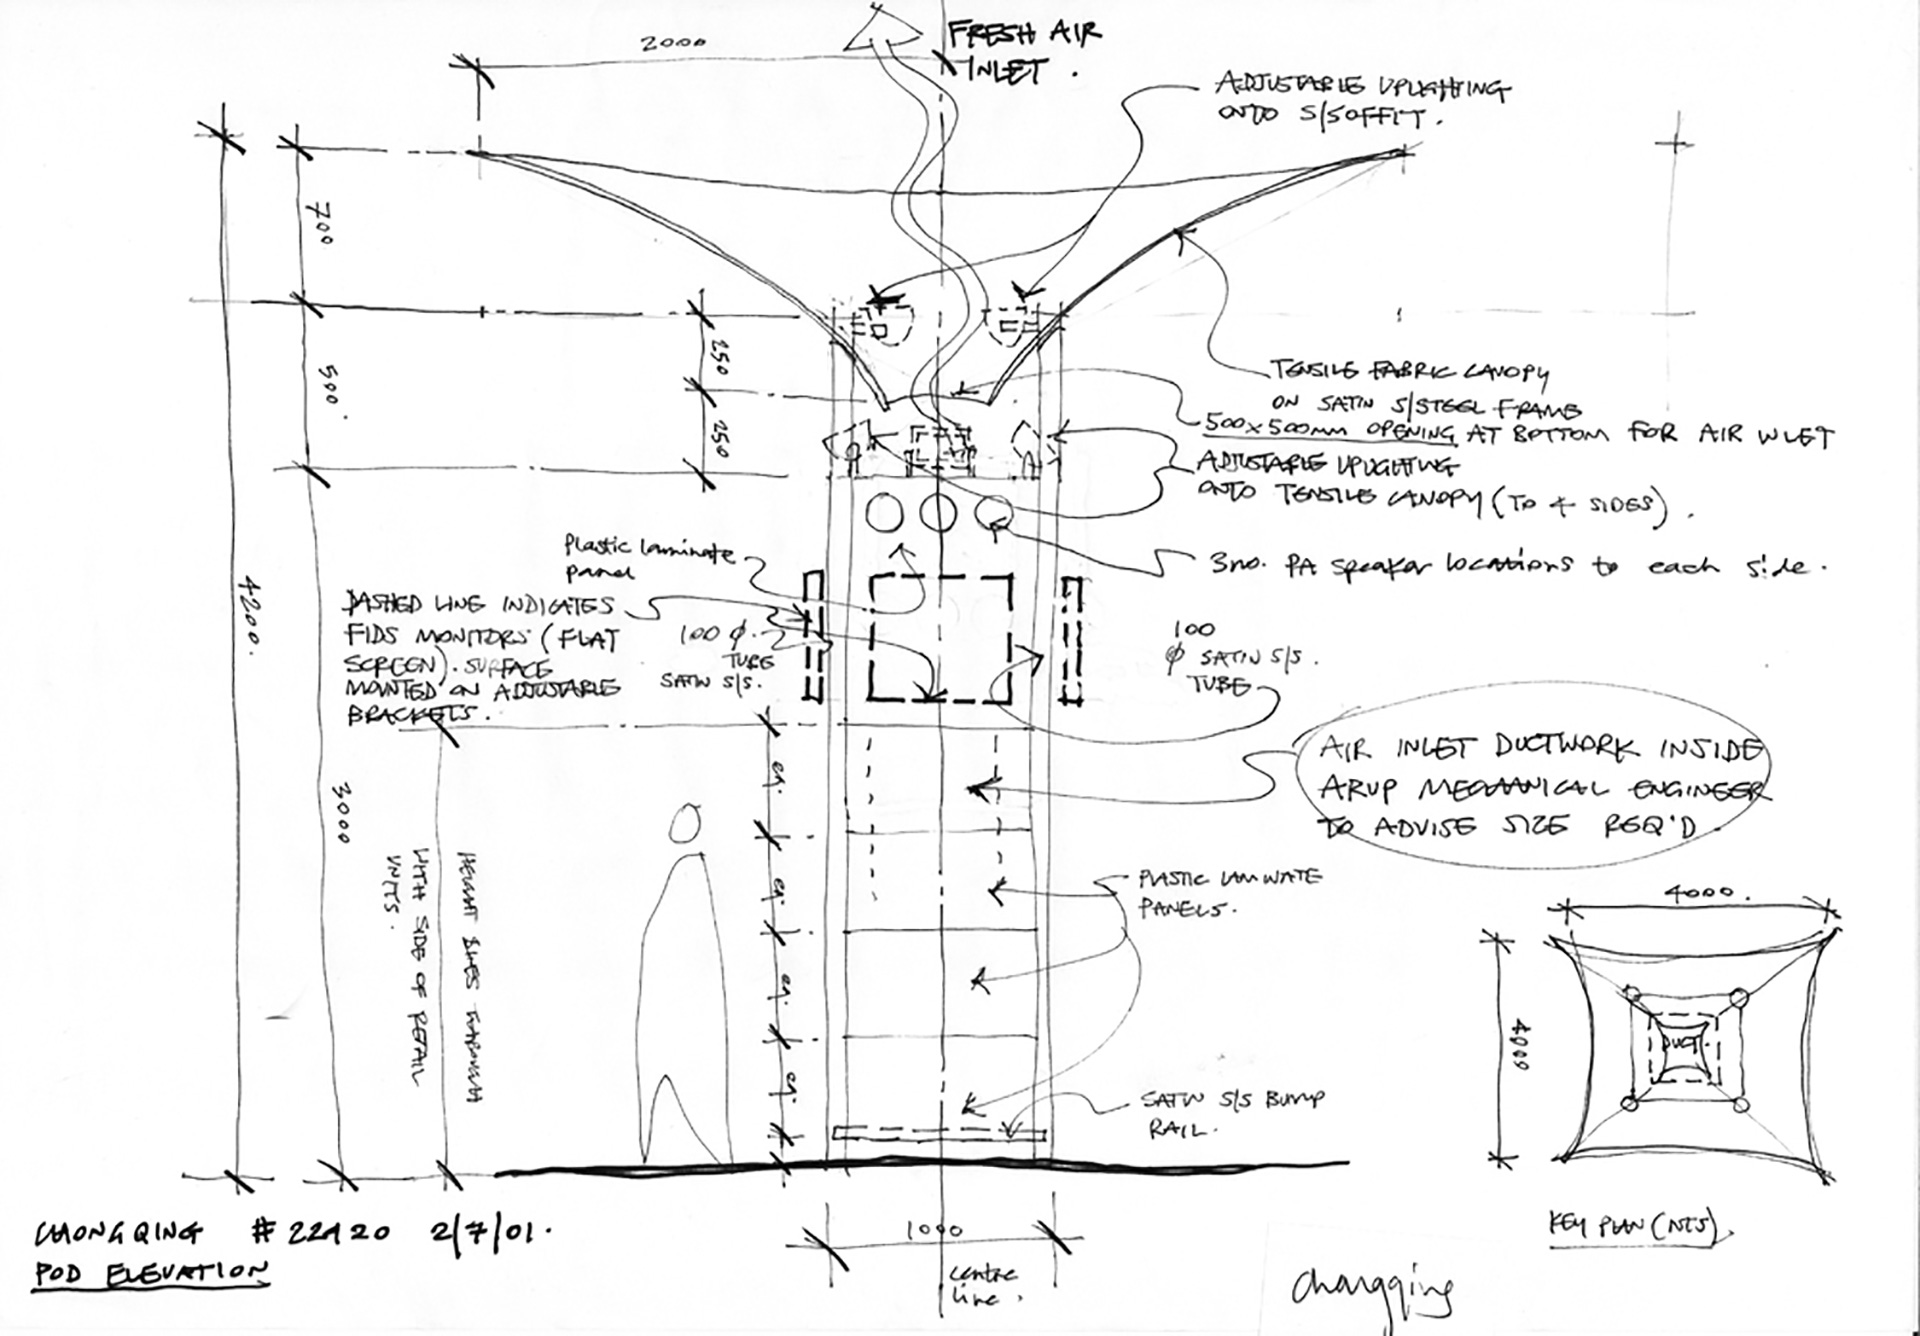 2000
FRESH AIR
INLET.
ADJUSTABLE UPLIGHTING
ONTO S/SOFFIT.
700
250
500
250
TENSILE FABRIC CANOPY
ON SATIN S/STEEL FRAME
500x500mm OPENING AT BOTTOM FOR AIR INLET
ADJUSTABLE UPLIGHTING
ONTO TENSILE CANOPY (TO 4 SIDES).
Plastic laminate
panel
3no. PA speaker locations to each side.
4200.
DASHED LINE INDICATES
FIDS MONITORS (FLAT
SCREEN). SURFACE
MOUNTED ON ADJUSTABLE
BRACKETS.
100 ϕ.
TUBE
SATIN S/S.
100
ϕ SATIN S/S.
TUBE
AIR INLET DUCTWORK INSIDE
ARUP MECHANICAL ENGINEER
TO ADVISE SIZE REQ'D.
3000
eq.
eq.
eq.
eq.
HEIGHT LINES THROUGH
WITH SIDE OF RETAIL
UNITS.
PLASTIC LAMINATE
PANELS.
SATIN S/S BUMP
RAIL.
4000.
4000
DUCT.
KEY PLAN (NTS).
CHONGQING #22420 2/7/01.
POD ELEVATION
1000
centre
line.
chongqing